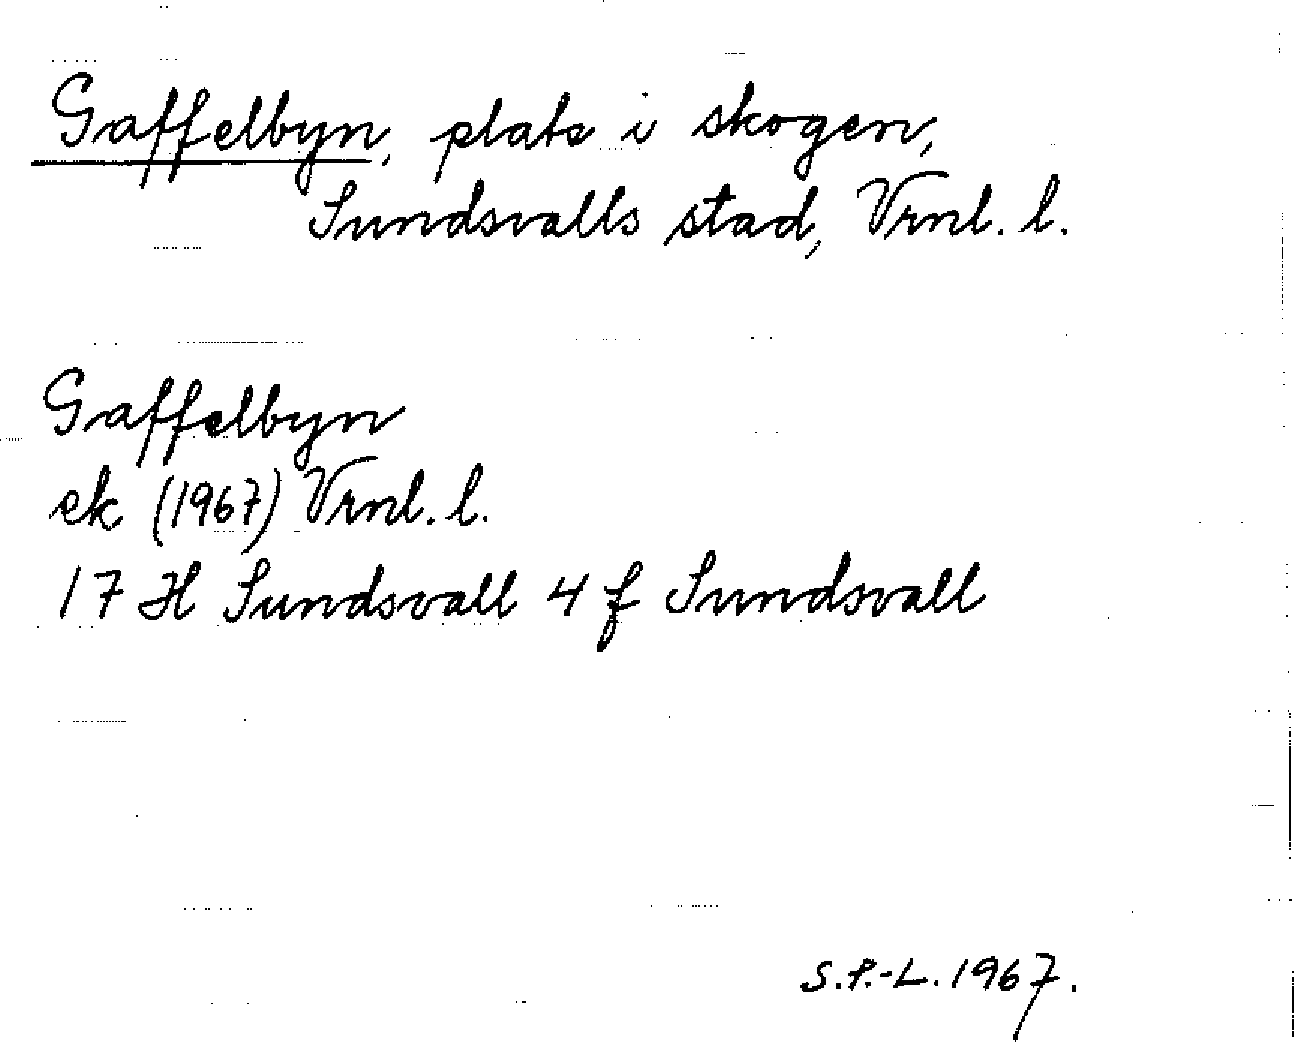 Gaffelbyn, plats i skogen,
Sundsvalls stad, Vrnl. l.
Gaffelbyn
ek (1967) Vrnl. l.
17 H Sundsvall 4 f Sundsvall
S.P.-L. 1967.